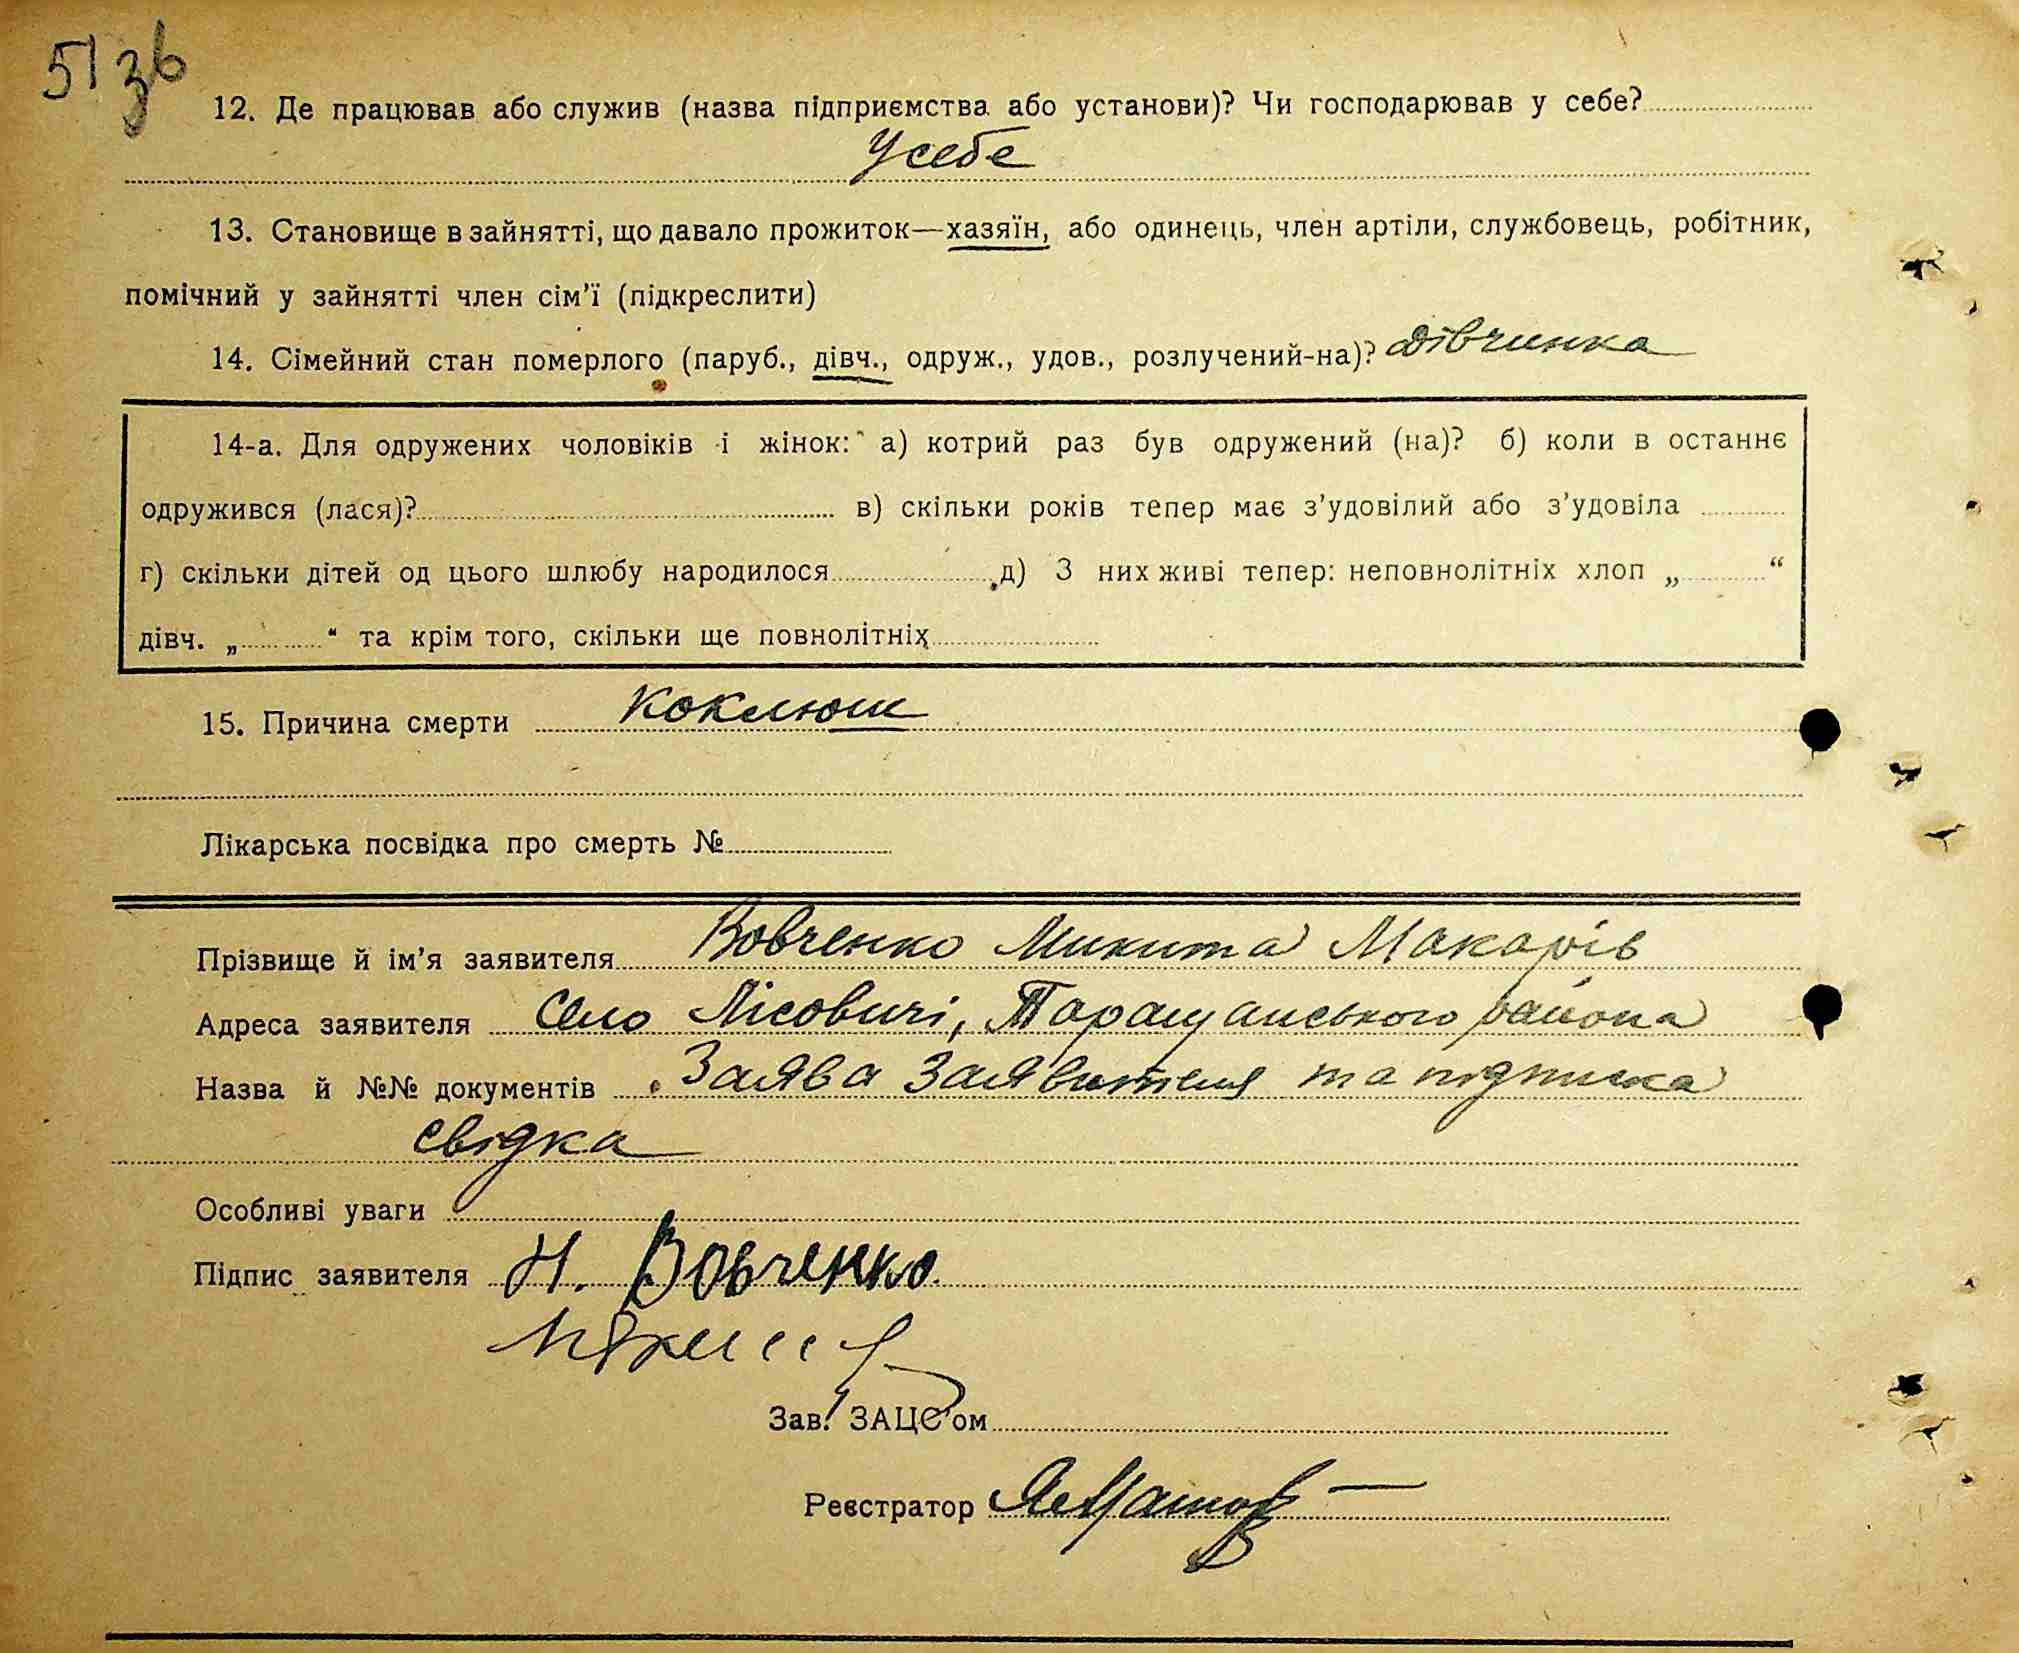 51 зв
12. Де працював або служив (назва підприємства або установи)? Чи господарював у себе?
У себе
13. Становище в зайнятті, що давало прожиток—хазяїн, або одинець, член артіли, службовець, робітник,
помічний у зайнятті член сім'ї (підкреслити)
14. Сімейний стан померлого (паруб., дівч., одруж., удов., розлучений-на)? дівчинка
14-а. Для одружених чоловіків і жінок: а) котрий раз був одружений (на)? б) коли в останнє
одружився (лася)? в) скільки років тепер має з'удовілий або з'удовіла
г) скільки дітей од цього шлюбу народилося д) З них живі тепер: неповнолітніх хлоп „ “
дівч. „ “ та крім того, скільки ще повнолітніх
15. Причина смерти Коклюш
Лікарська посвідка про смерть №
Прізвище й ім'я заявителя Вовченко Микита Макарів
Адреса заявителя Село Лісовичі, Таращанського района
Назва й №№ документів Заява заявителя та підписка
свідка
Особливі уваги
Підпис заявителя Н. Вовченко
Зав. ЗАЦС'ом
Реєстратор